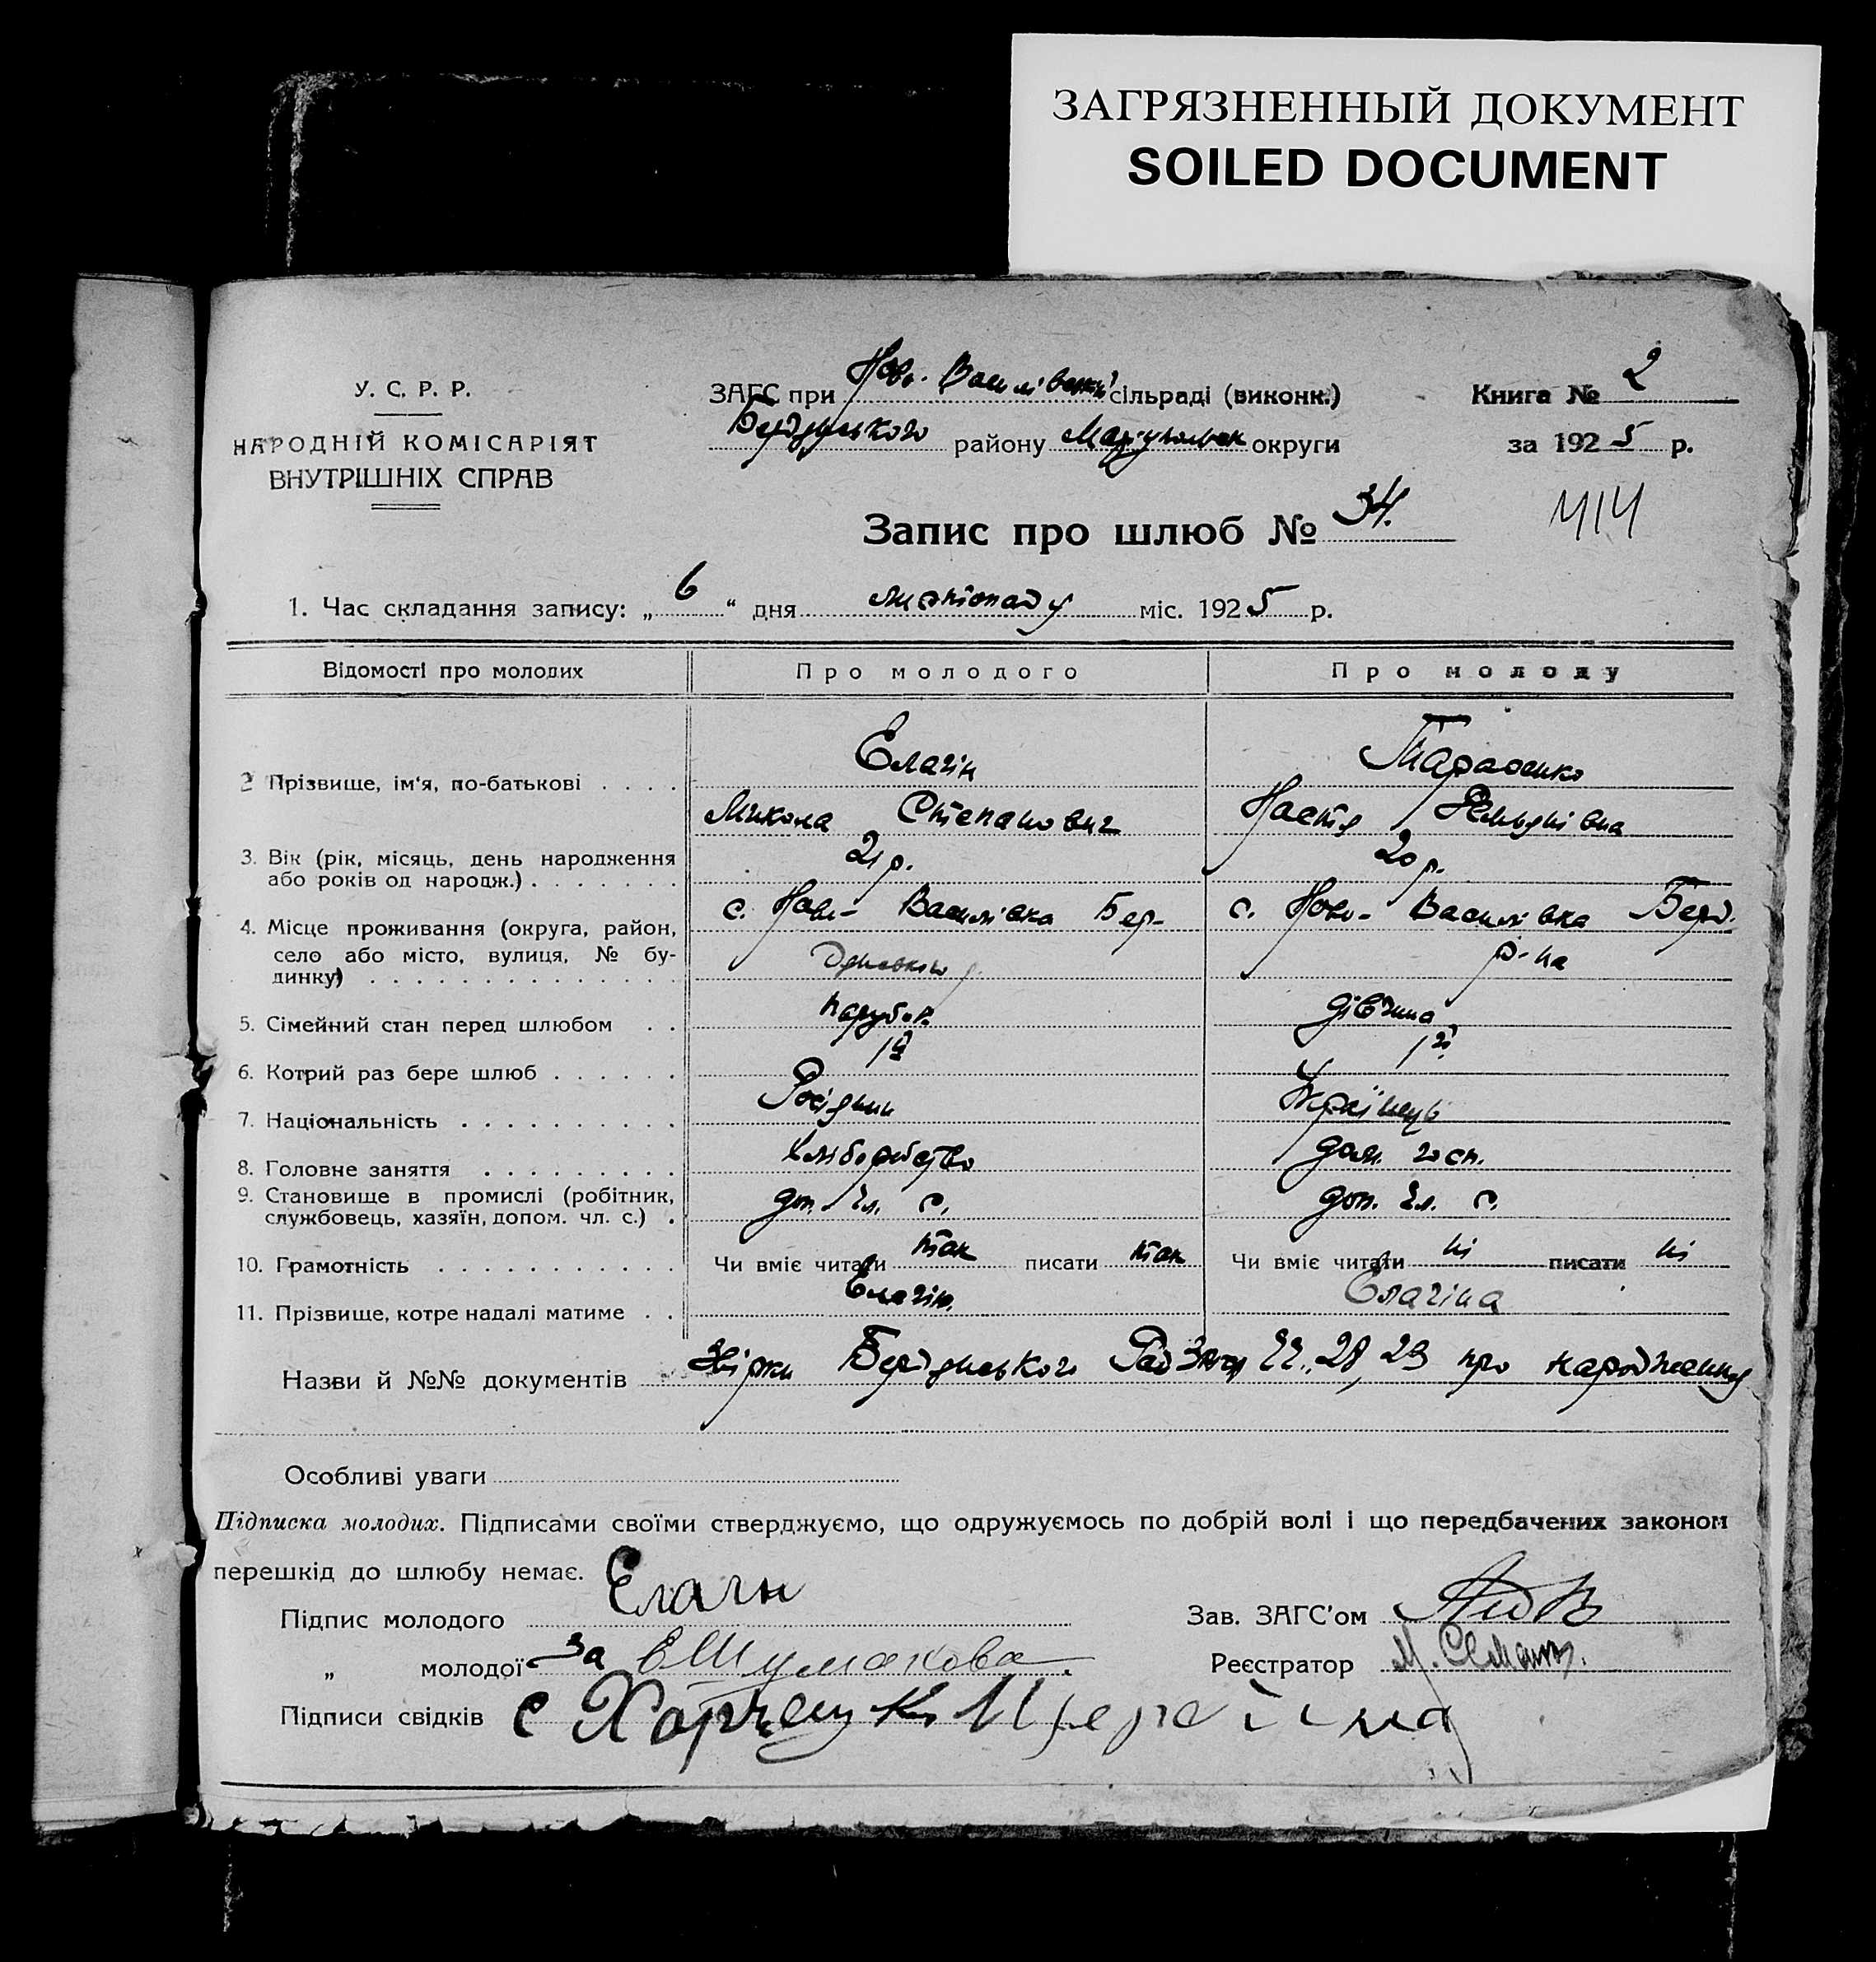 ЗАГРЯЗНЕННЫЙ ДОКУМЕНТ
SOILED DOCUMENT
У. С. Р. Р.
НАРОДНІЙ КОМІСАРІЯТ
ВНУТРІШНІХ СПРАВ
ЗАГС при Ново-Василівській сільраді (виконк.)
Бердянського району Маріупольськ округи
Книга № 2
за 1925 р.
Запис про шлюб № 34.
414
1. Час складання запису: „ 6 “ дня листопаду міс. 1925 р.
Відомості про молодих Про молодого Про молоду
2 Прізвище, ім‘я, по-батькові . . . . Елагін Тарасенко
Микола Степанович Настя
3. Вік (рік, місяць, день народження 21 р. 20 р.
або років од народж.) . . . . . . .
4. Місце проживання (округа, район, с. Ново-Василівка Бер- с. Ново-Василівка Берд.
село або місто, вулиця, № бу- дянського р. р-на
динку) . . . . . . . . . . . . . .
5. Сімейний стан перед шлюбом . . парубок дівчина
6. Котрий раз бере шлюб . . . . . . 1й 1й
7. Національність . . . . . . . . . . Росіянин Українець
8. Головне заняття . . . . . . . . . хліборобство дом. госп.
9. Становище в промислі (робітник, доп. чл. с. доп. чл. с.
службовець, хазяїн, допом. чл. с.) .
10. Грамотність . . . . . . . . . . . Чи вміє читати так писати так Чи вміє читати ні писати ні
11. Прізвище, котре надалі матиме . . Елагін. Елагіна
Назви й №№ документів Бердянського 28, 29 про народження
Особливі уваги
Підписка молодих. Підписами своїми стверджуємо, що одружуємось по добрій волі і що передбачених законом
перешкід до шлюбу немає.
Підпис молодого Елагн
Зав. ЗАГС’ом
„ молодої За Е Шумакова.
Реєстратор М.
Підписи свідків С